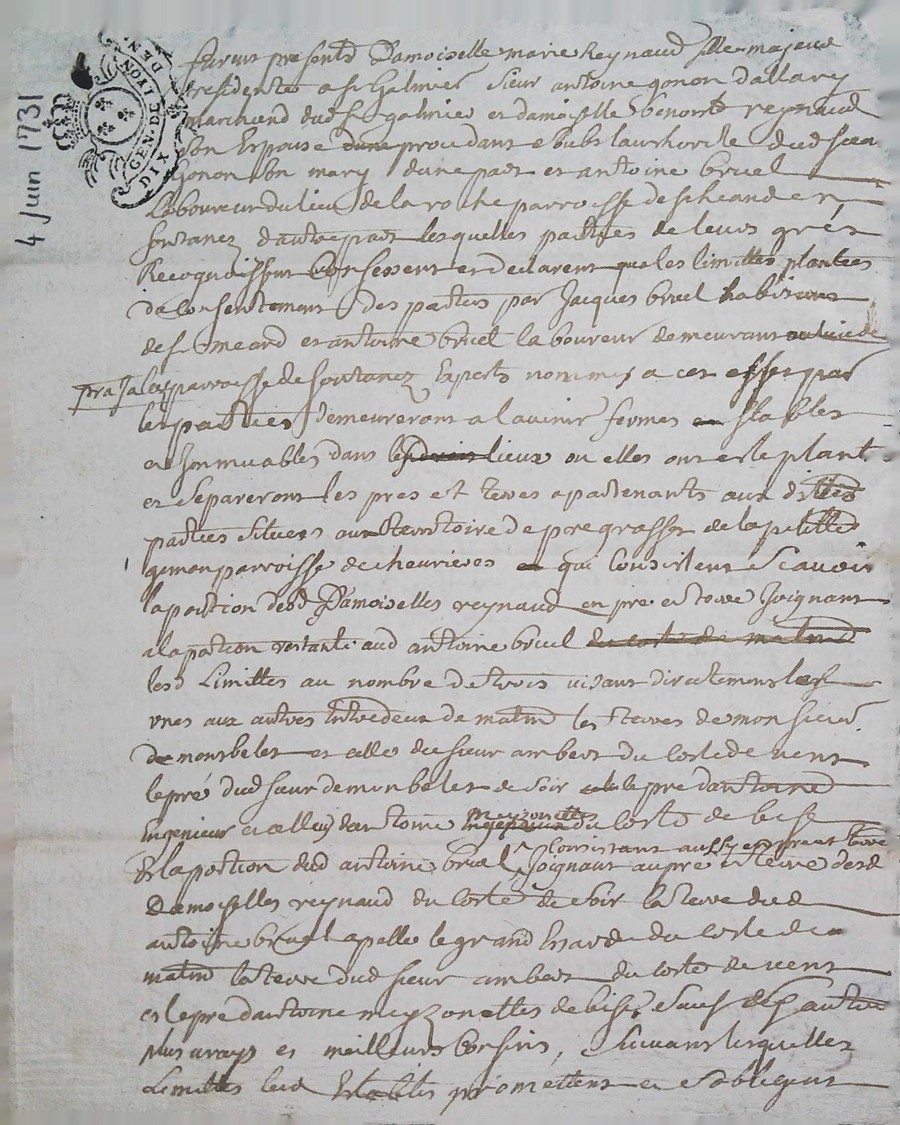 4 Juin 1731
GEN. DE LYON
DIX DEN.
furent presents Damoiselle marie Reynaud fille majeure
residente a st Galmier sieur antoine gonon dallary
marchand dud st galmier et damoyselle benoite reynaud
son Espouse procedant lauthorité dud sieur
gonon son mary dune part et antoine bruel
Laboureur du lieu de la roche parroisse de
fontanez dautre part lesquelles parties de leurs grés
Recognoissent Confessent et declarent que les limittes plantées
du Consentement des parties par Jacques bruel habitant
de st meard et antoine bruel laboureur demeurant au lieu de
pra parroisse de fontanez Experts nommés a cet effet par
les parties demeureront a lavenir fermes stables
et Inmuables dans les lieux ou elles ont esté plant
et separeront les pres et terres apartenants aux dittes
parties situees territoire de pre grasse de la petitte
gimon parroisse de chevrieres qui Consistent scavoir
la portion desd Damoiselles reynaud en pre et terre Joignant
a la portion restante aud antoine bruel du costé de matin
lesd Limittes au nombre de trois visant directement les
unes aux autres de matin les terres de monsieur
de montbelet et celle du sieur ambert du costé de vent
le pré dud sieur de monbelet de soir le pre dantoine
Ingenieur et celluy dantoine meyzonettes du costé de bise
Et la portion dud antoine bruel Consistant aussy en pre et terre
Joignant au pre et terre desd
Damoyselles reynaud du costé de soir la terre dud
antoine bruel apellé le grand du costé de
matin la terre dud sieur ambert du costé de vent
et le pre dantoine meyzonettes de bise sauf
plus vrays et meilleurs Confins, suivant lesquelles
Limittes Establies promettent et sobligent